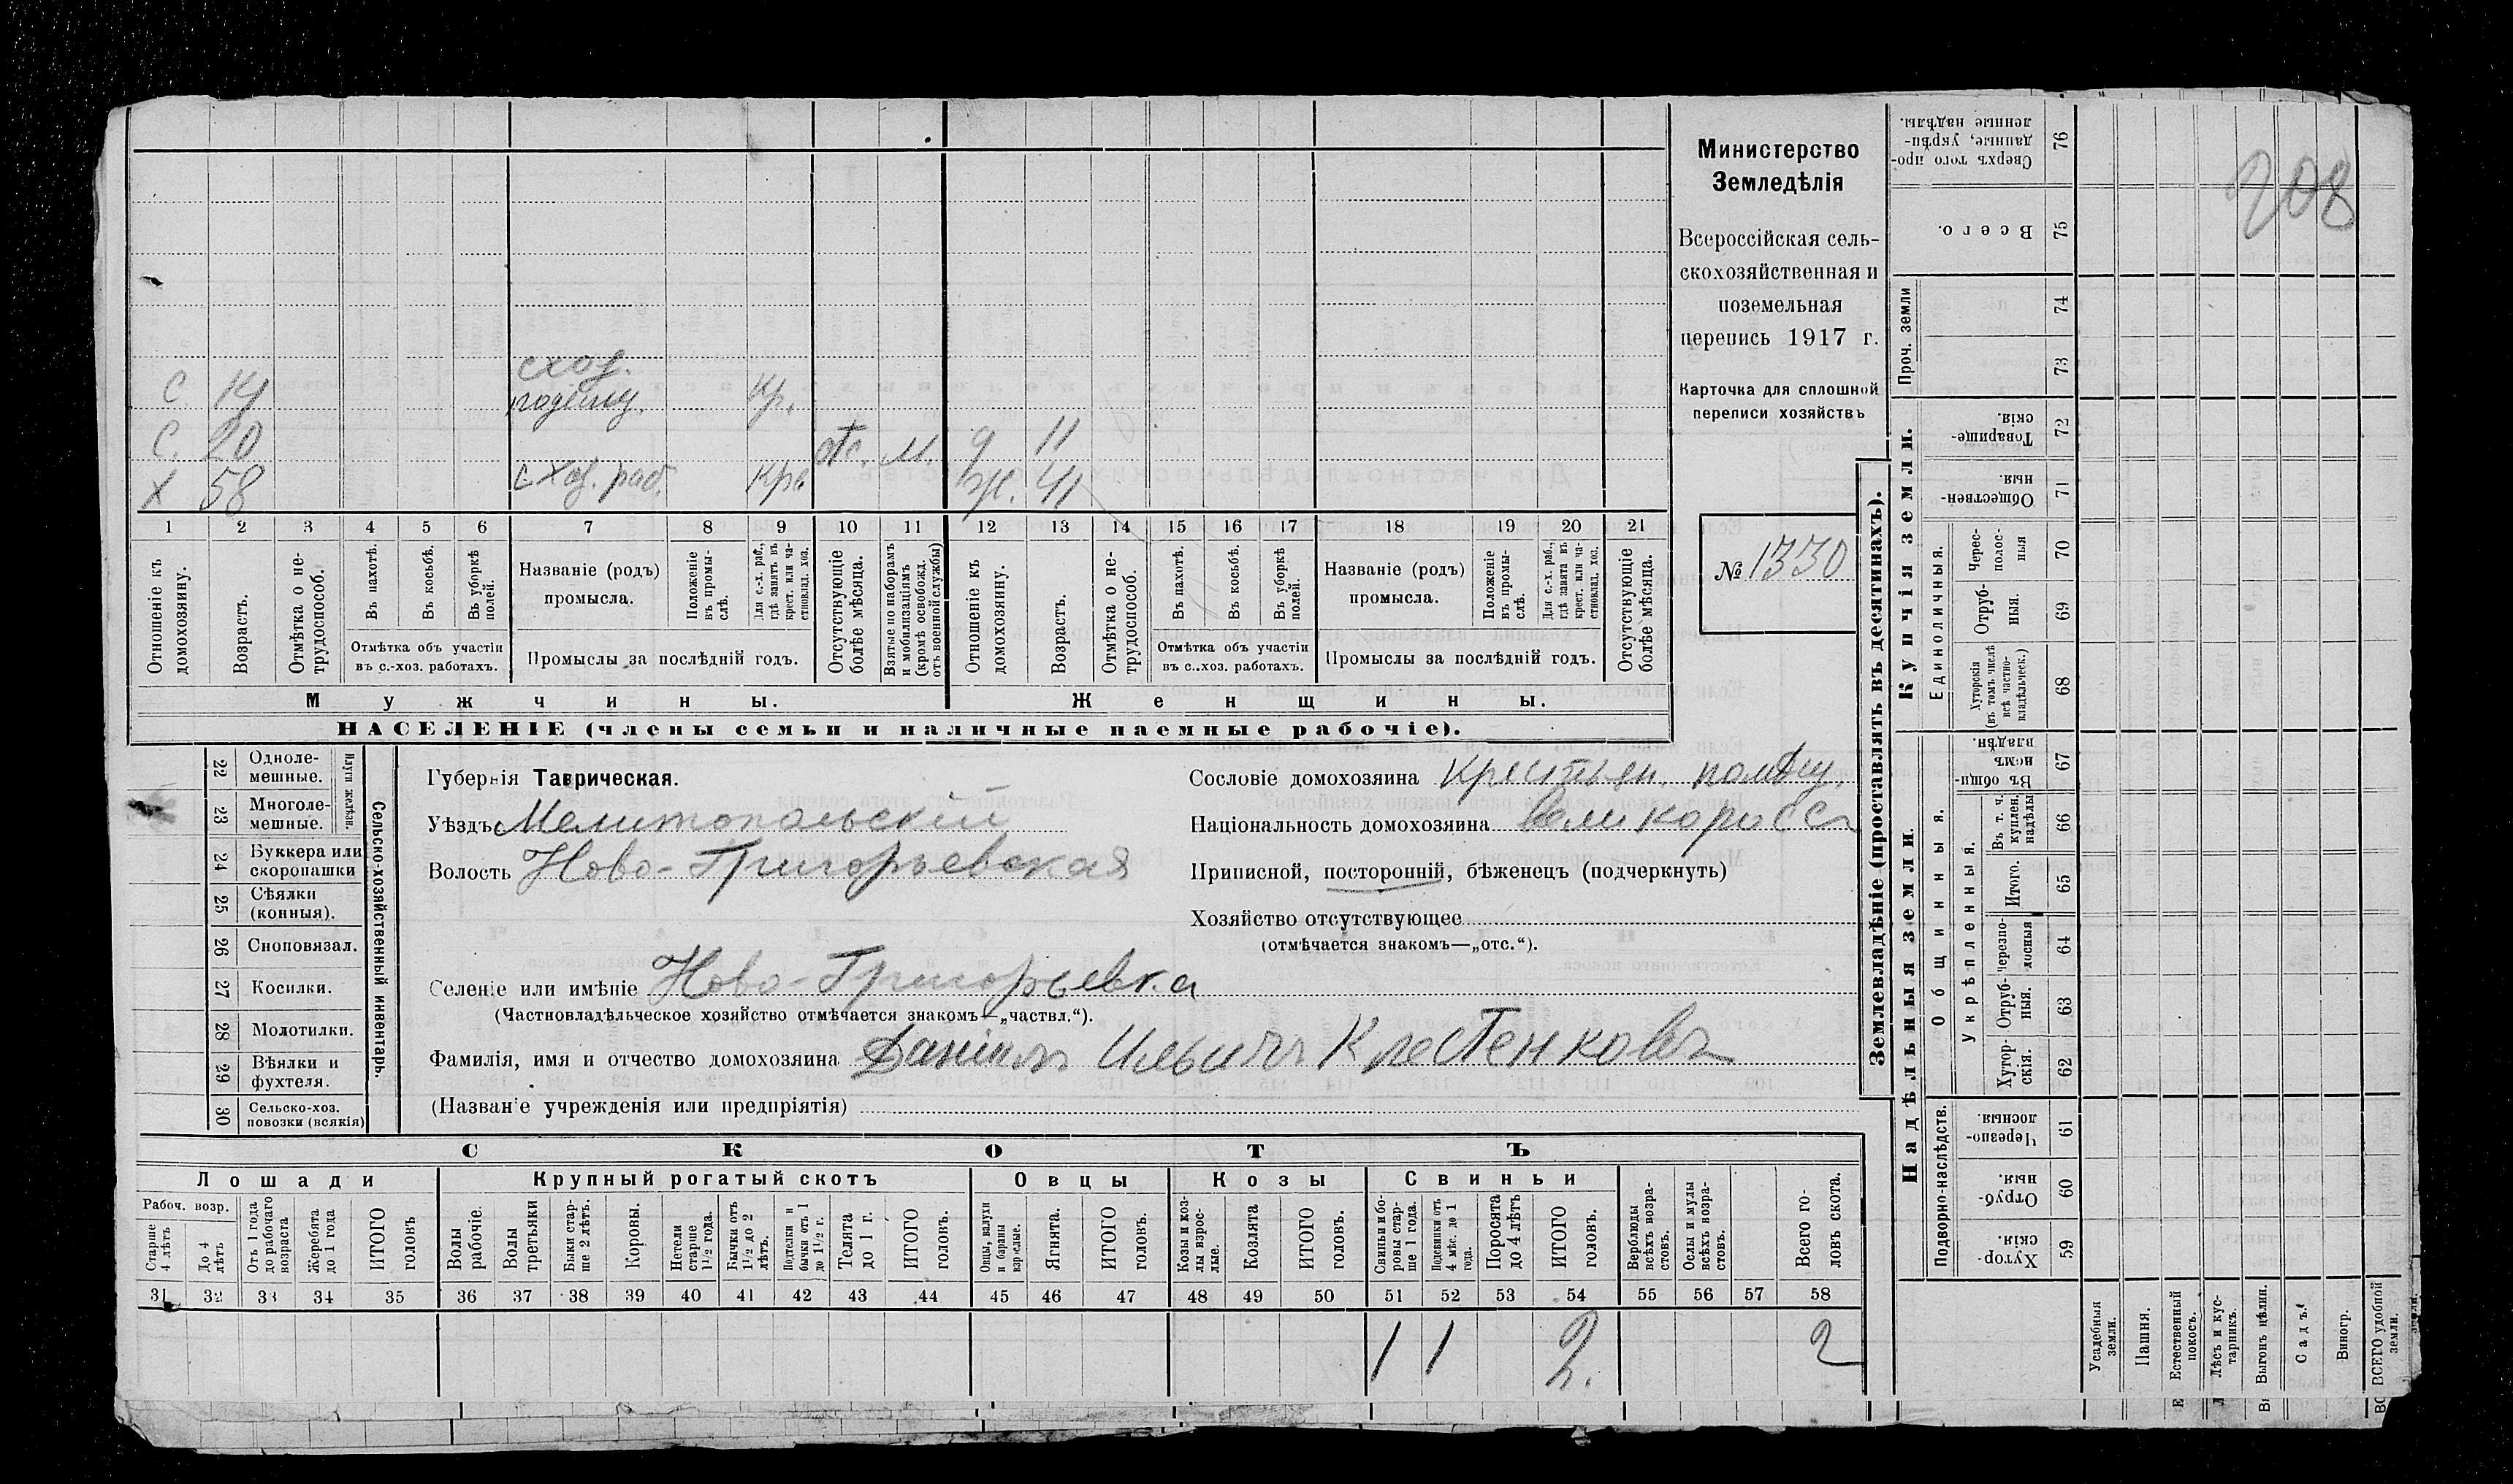 208
Министерство
Земледѣлія
Всероссійская сель-
скохозяйственная и
поземельная
перепись 1917 г.
Карточка для сплошной
переписи хозяйствъ
№ 1330
сход.
С. поденщ. Кр.
С. 20 отс. м. д 11
Х 58 с хоз. раб. Кре ж. 41
1 2 3 4 5 6 7 8 9 10 11 12 13 14 15 16 17 18 19 20 21
Отношеніе къ домохозяину.
Возрастъ.
Отмѣтка о не-трудоспособ.
Въ пахотѣ.
Въ косьбѣ.
Въ уборкѣ полей.
Отмѣтка объ участіи
въ с.-хоз. работахъ.
Названіе (родъ)
промысла.
Положеніе въ промы-слѣ.
Для с.-х. раб., гдѣ занятъ въ крест. или ча-стновлад. хоз.
Промыслы за послѣдній годъ.
Отсутствующіе болѣе мѣсяца.
Взятые по наборамъ и мобилизаціямъ (кромѣ освобожд. отъ военной службы)
Отношеніе къ домохозяину.
Возрастъ.
Отмѣтка о не-трудоспособ.
Въ пахотѣ.
Въ косьбѣ.
Въ уборкѣ полей.
Отмѣтка объ участіи
въ с..хоз. работахъ.
Названіе (родъ)
промысла.
Положеніе въ промы-слѣ.
Для с.-х. раб., гдѣ занята въ крест. или ча-стновлад. хоз.
Промыслы за послѣдній годъ.
Отсутствующіе болѣе мѣсяца.
Мужчины. Женщины.
НАСЕЛЕНІЕ (члены семьи и наличные наемные рабочіе).
Сельско-хозяйственный инвентарь.
Плуги желѣзн.
22 Одноле-мешные.
23 Многоле-мешные.
24 Буккера или скоропашки
25 Сѣялки (конныя).
26 Сноповязал.
27 Косилки.
28 Молотилки.
29 Вѣялки и фухтеля.
30 Сельско-хоз. повозки (всякія)
Губернія Таврическая.
Уѣздъ Мелитопольскій
Волость Ново-Григорьевская
Селеніе или имѣніе Ново-Григорьевка
(Частновладѣльческое хозяйство отмѣчается знакомъ—„частвл.“).
Фамилія, имя и отчество домохозяина Даніилъ Ильичъ Клестенковъ
(Названіе учрежденія или предпріятія)
Сословіе домохозяина Крестьян.
Національность домохозяина великоросс
Приписной, посторонній, бѣженецъ (подчеркнуть)
Хозяйство отсутствующее
(отмѣчается знакомъ—„отс.“).
СКОТЪ
Лошади Крупный рогатый скотъ Овцы Козы Свиньи
Рабоч. возр.
Старше 4 лѣтъ
До 4 лѣтъ
Отъ 1 года до рабочаго возраста
Жеребята до 1 года
ИТОГО головъ
Волы рабочіе.
Волы третьяки
Быки стар-ше 2 лѣтъ.
Коровы.
Нетели старше 1½ года.
Бычки отъ 1½ до 2 лѣтъ.
Подтелки и бычки отъ 1 до 1½ г.
Телята до 1 г.
ИТОГО головъ.
Овцы, валухи и бараны взрослые.
Ягнята.
ИТОГО головъ.
Козы и коз-лы взрос-лые.
Козлята
ИТОГО головъ.
Свиньи и бо-ровы стар-ше 1 года.
Подсвинки отъ 4 мѣс. до 1 года.
Поросята до 4 лѣтъ
ИТОГО головъ.
Верблюды всѣхъ возра-стовъ.
Ослы и мулы всѣхъ возра-стовъ.
Всего го-ловъ скота.
31 32 33 34 35 36 37 38 39 40 41 42 43 44 45 46 47 48 49 50 51 52 53 54 55 56 57 58
1 1 2. 2
Землевладѣніе (проставлять въ десятинахъ).
Купчія земли.
Сверхъ того про-данные, укрѣп-ленные надѣлы. 76
Всего. 75
Проч. земли 74
73
Товарище-скія. 72
Обществен-ныя. 71
Единоличныя.
Черес-полос-ныя 70
Отруб-ныя. 69
Хуторскія (въ томъ числѣ всѣ частно-владѣльческ.) 68
Надѣльныя земли.
Общинныя.
Въ общи-номъ владѣн. 67
Укрѣпленныя.
Въ т. ч. куплен. надѣлы 66
Итого. 65
Черезпо-лосныя 64
Отруб-ныя. 63
Хутор-скія. 62
Подворно-наслѣдств.
Черезпо-лосныя. 61
Отруб-ныя. 60
Хутор-скія. 59
Усадебныя земли.
Пашня.
Естественный покосъ.
Лѣсъ и кус-тарникъ.
Выгонъ цѣлин.
Садъ.
Виногр.
ВСЕГО удобной земли.